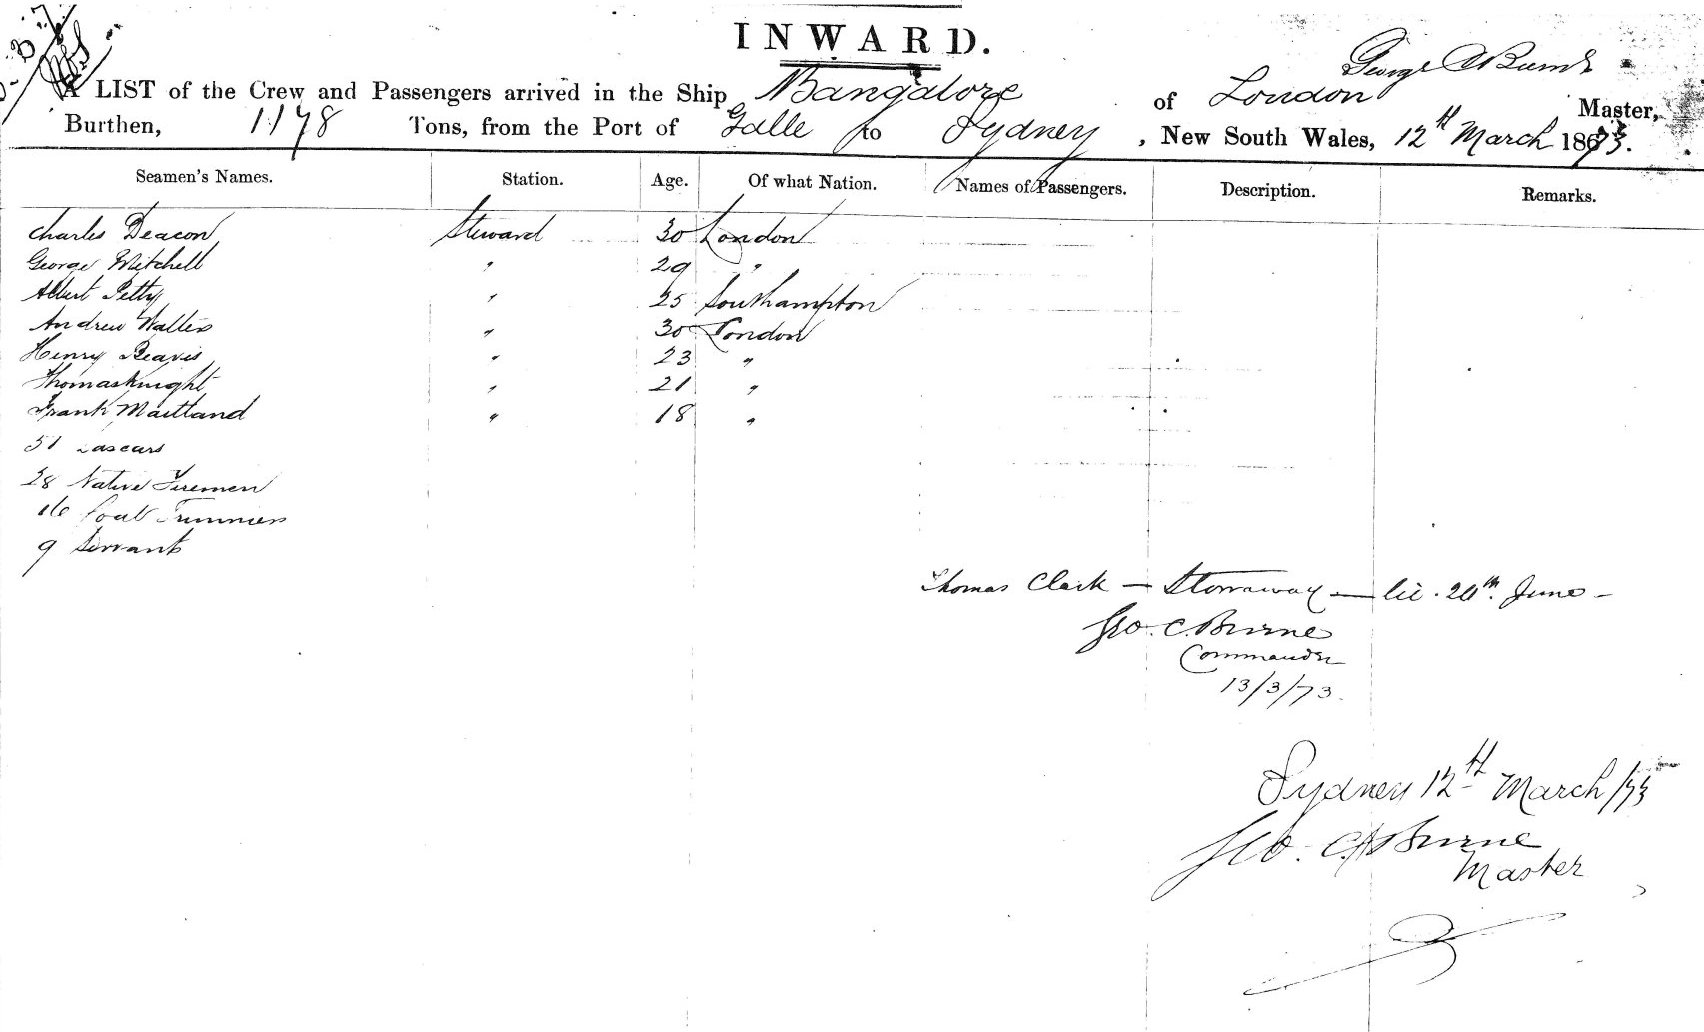 INWARD.
George C Burne
A LIST of the Crew and Passengers arrived in the Ship Bangalore of London Master,
Burthen, 1178 Tons, from the Port of Galle to Sydney, New South Wales, 12th March 1873.
Seamen's Names. Station. Age. Of what Nation. Names of Passengers. Description. Remarks.
Charles Deacon Steward 30 London
George Mitchell " 29 "
Albert Petty " 25 Southampton
Andrew Walters " 30 London
Henry Reavis " 23 "
Thomas Knight " 21 "
Frank Maitland " 18 "
51 Lascars
28 Native Firemen
16 Coal Trimmers
9 Servants
Thomas Clark — Stowaway — June —
Geo. C. Burne
Commander
13/3/73.
Sydney 12th March /73
Geo. C. Burne
Master